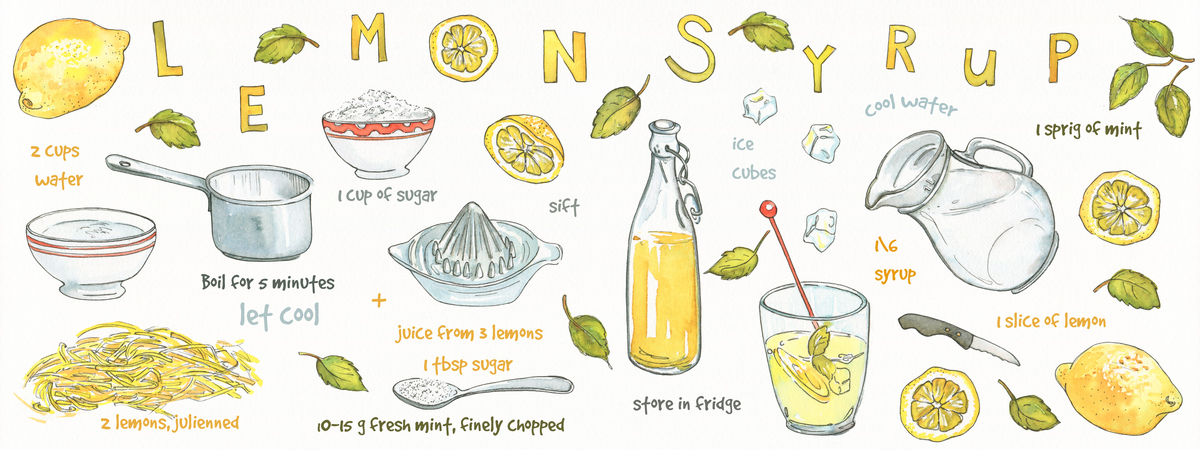 LEMON SYRUP
2 cups
water
1 cup of sugar
Boil for 5 minutes
let cool
2 lemons, julienned
sift
+
juice from 3 lemons
1 tbsp sugar
10-15 g fresh mint, finely chopped
store in fridge
ice
cubes
cool water
1 sprig of mint
1\6
syrup
1 slice of lemon